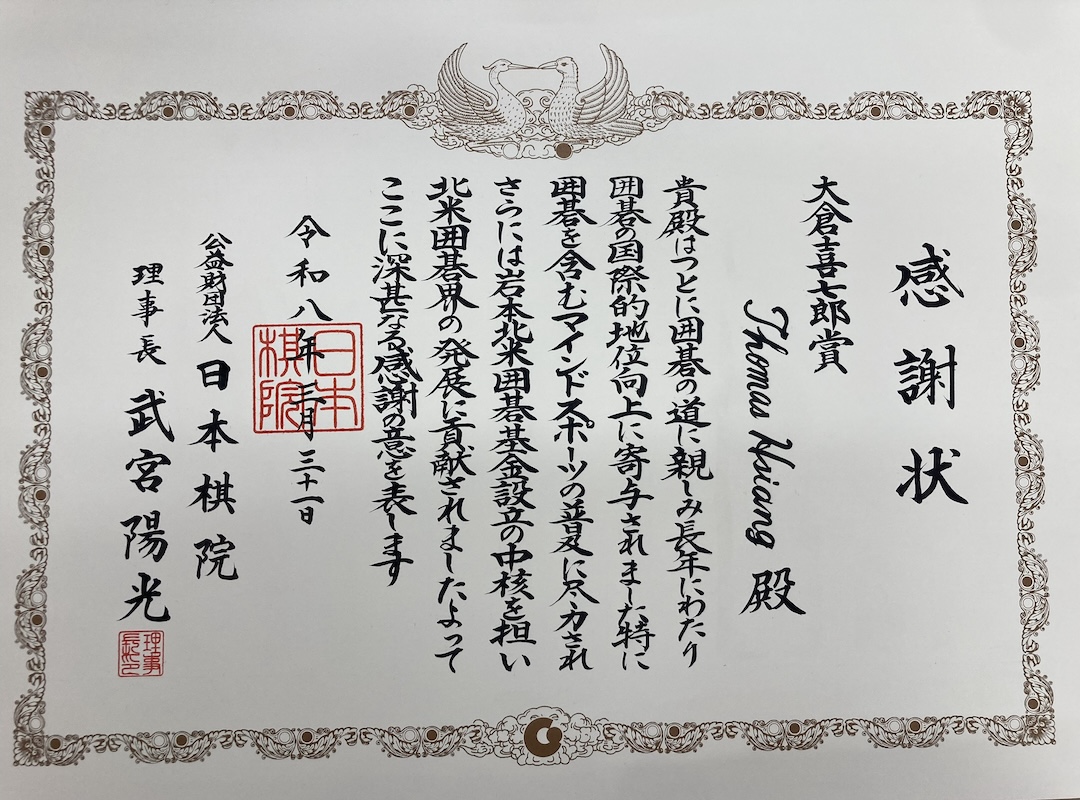 感謝状
大倉喜七郎賞
Thomas Hsiang 殿
貴殿はつとに囲碁の道に親しみ長年にわたり
囲碁の国際的地位向上に寄与されました特に
囲碁を含むマインドスポーツの普及に尽力され
さらには岩本北米囲碁基金設立の中核を担い
北米囲碁界の発展に貢献されましたよって
ここに深甚なる感謝の意を表します
令和八年三月三十一日
日本棋院
公益財団法人 日本棋院
理事長 武宮陽光
理事長印